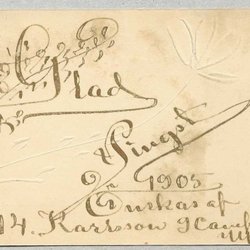 Glad
Pingst
1905
Önskas af
14. Karlsson